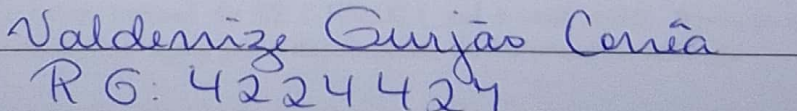 Valdenize Gurjão Corrêa
RG: 4224424